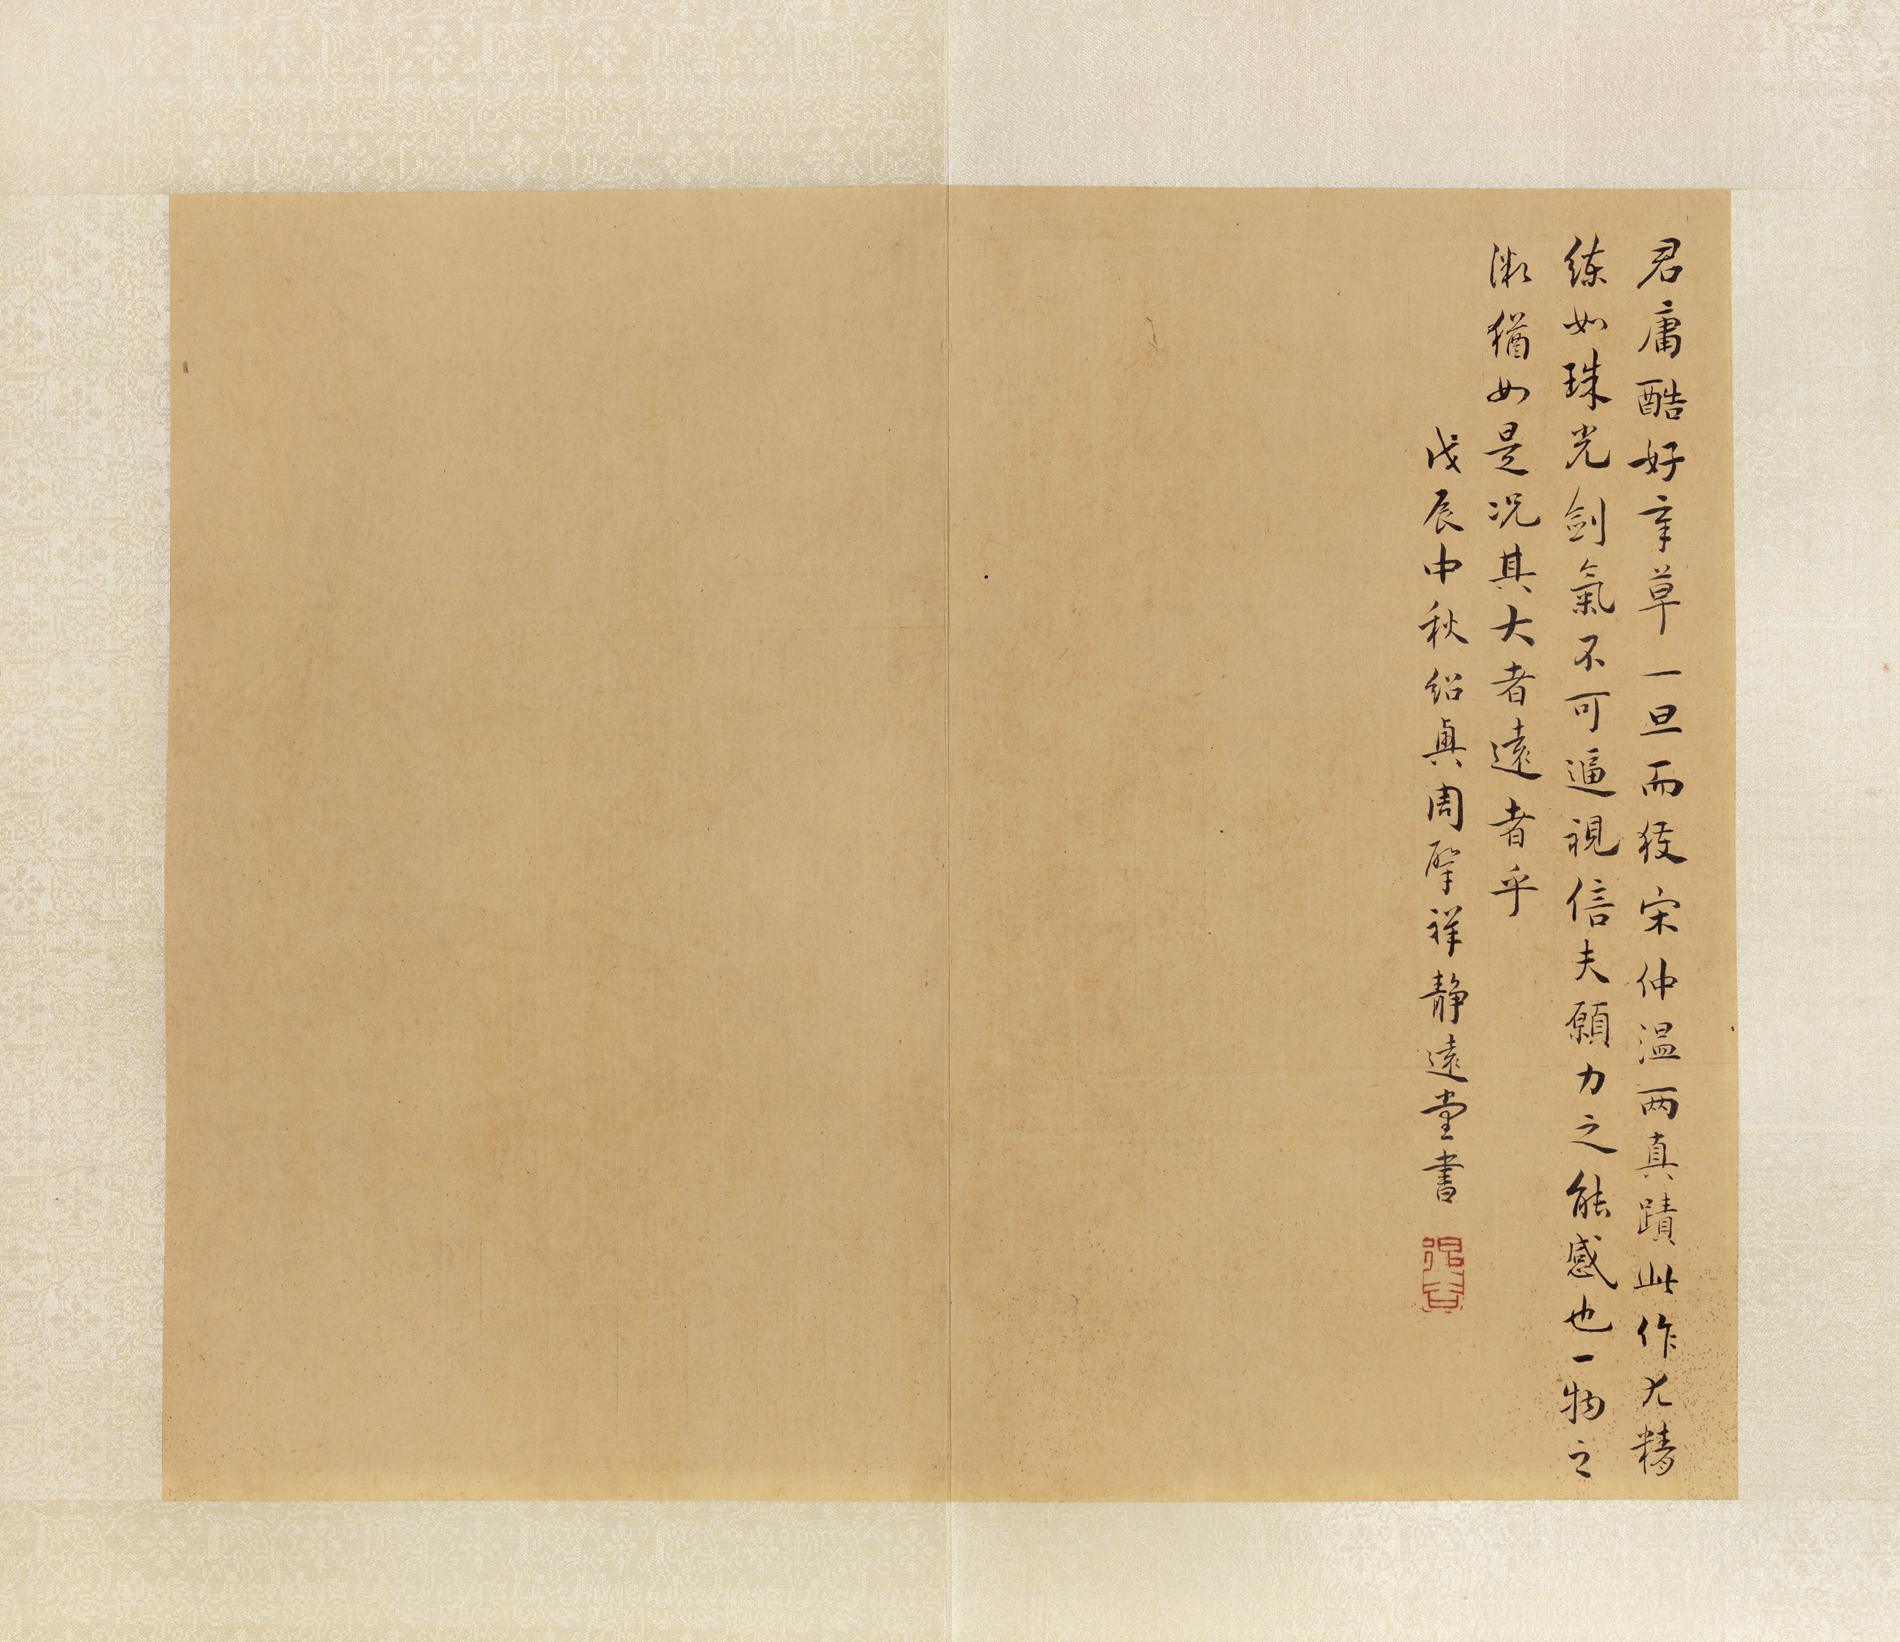 君庸酷好章草一旦而获宋仲温两真蹟此作尤精
练如珠光剑氣不可逼視信夫願力之能感也一物之
微猶如是况其大者遠者乎
戊辰中秋绍興周肇祥靜遠堂書